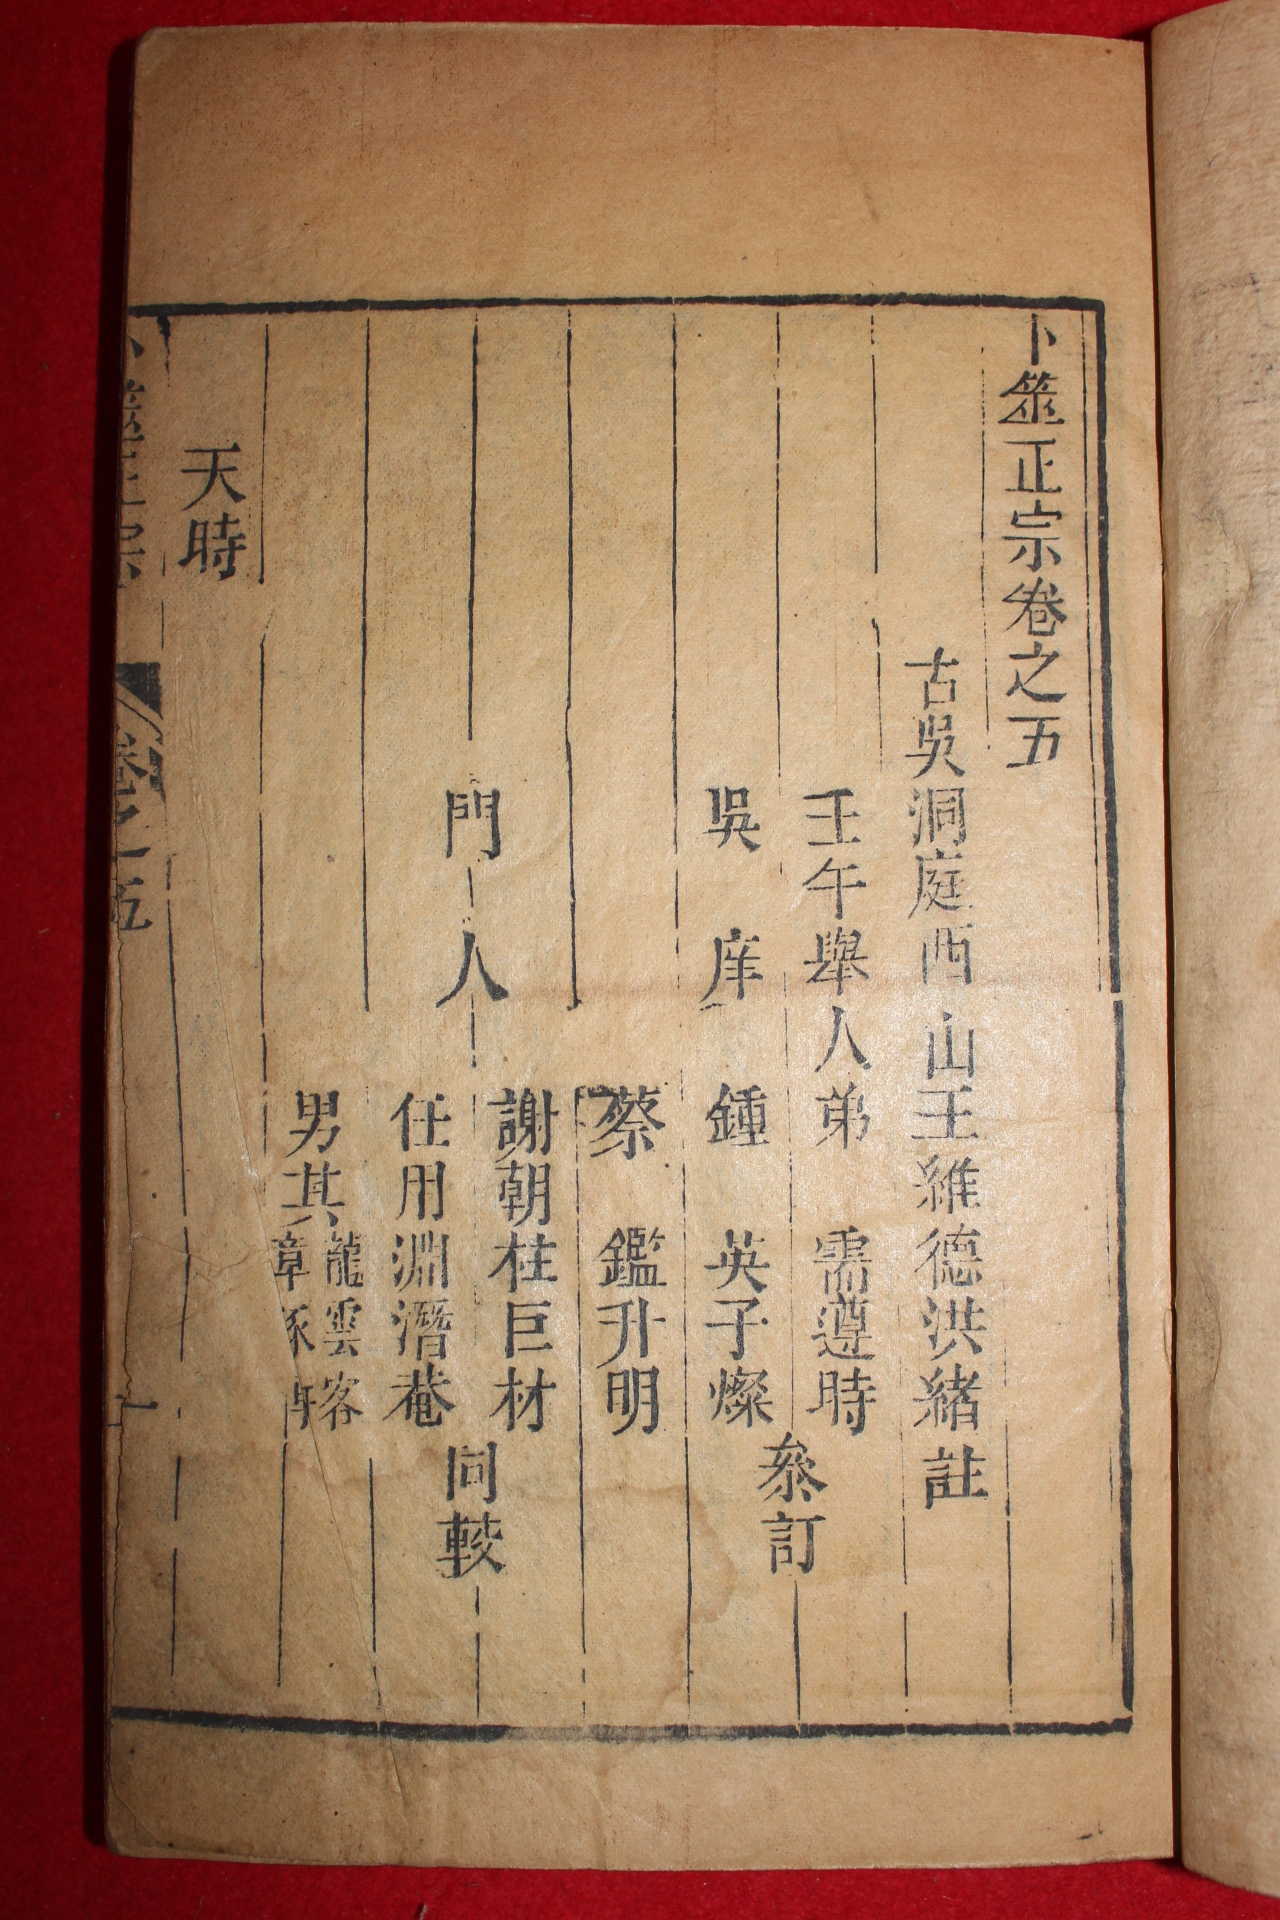 卜筮正宗卷之五
古吳洞庭西山王維德洪緒註
壬午舉人弟 需遵時
吳庠 鍾 英子燦
參訂
蔡 鑑升明
謝朝柱巨材
門人
任用淵潛菴
同較
男其龍雲客
章琢
天時
卜筮正宗
卷之五
一